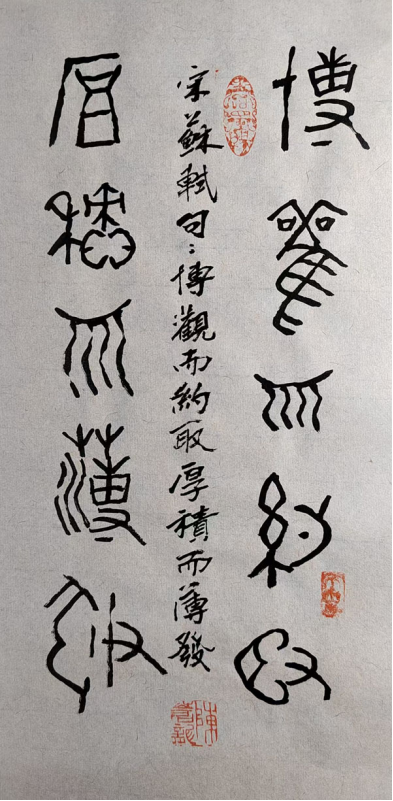 博觀而約取
宋蘇軾句：博觀而約取厚積而薄發
厚積而薄發